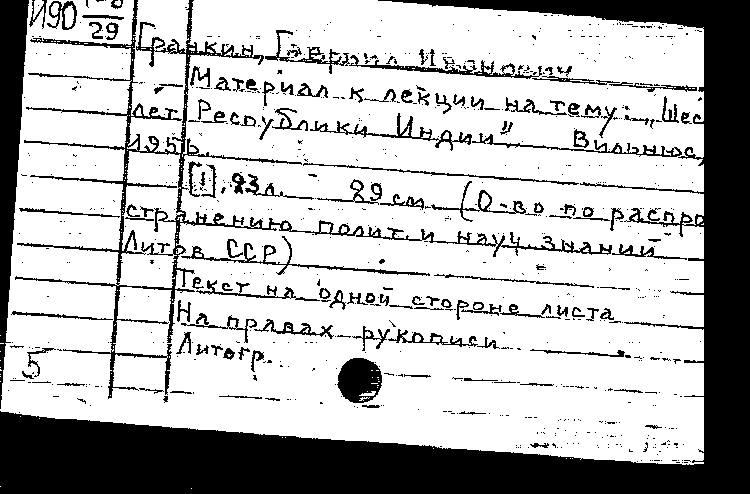 И90 29
Гранкин, Гавриил Иванович
Материал к лекции на тему: „Шес
лет Республики Индии" Вильнюс,
1956.
[1], 23 л. 29 см. (О-во по распро
странению полит. и науч. знаний
Литов. ССР)
Текст на одной стороне листа
На правах рукописи
Литогр.
5